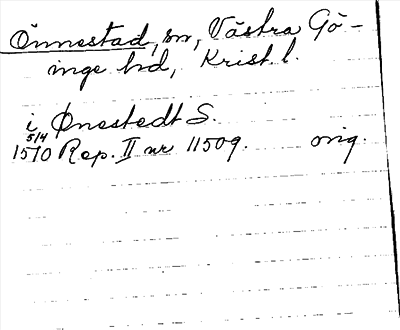 Önnestad, sn, Västra Gö-
inge hd, Krist. l.
i Ønestedt S.
5/4
1510 Rep. II nr 11509. orig.